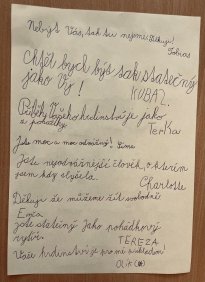 Nebýt Vás, tak tu nejsme! Děkuji!
Tobias
Chtěl bych být tak statečný
jako Vy!
KUBA Ž.
Příběh Vašeho hrdinství je jako
z pohádky.
Terka
Jste moc a moc odvážný!
Jste nejodvážnější člověk, o kterém
jsem kdy slyšela.
Charlotte
Děkuji, že můžeme žít svobodně.
Ema
Jste statečný jako pohádkový
rytíř.
TEREZA
Vaše hrdinství je pro mě
Olík